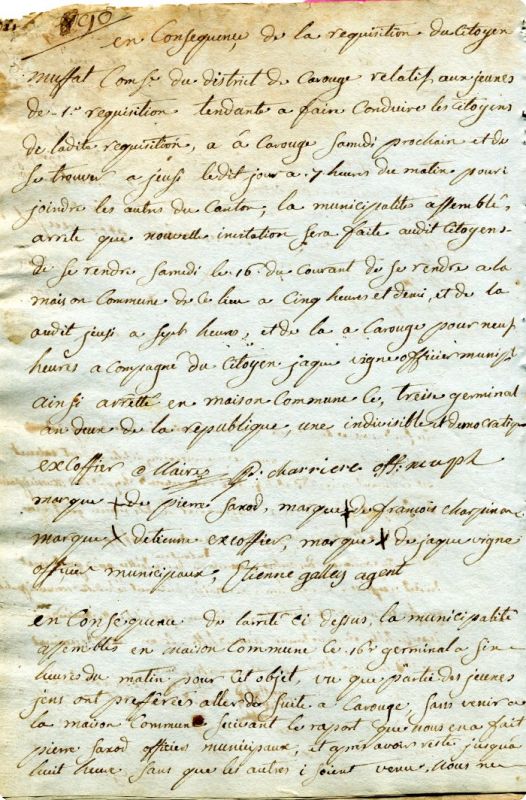 190
en Consequence de la requisition du Citoyen
muffat Comse. du district de Carouge relatif aux jeunes
de 1re requisition tendante a faire Conduire les Citoyens
de ladite requisition, a à Carouge Samdi prochain et de
se trouver a jeusi ledit jour a 7 heures du matin pour i
joindre les autres du Canton, la municipalités assemblé
arrete que nouvelle invitation Sera faite audit Citoyens
de se rendre Samdi le 16e. du Courant de se rendre a la
maison Commune de Ce lieu a Cinq heures et demi, et de la
audit jeusi a Sept heures, et de la a Carouge pour neuf
heures a Compagné du Citoyen jaque vigne officier municipl
ainsi arretté en maison Commune Ce, treise germinal
an deux de la republique, une indivisible et democratique
excoffier maire p: charriere off: munpl
marque + de pierre Saxod, marque + de françois Charpine
marque X detienne excoffier, marque X de jaque vigne
officier municipaux, Etienne galley agent
en Conséquence de larreté Ci dessus, la municipalité
assembles en maison Commune Ce 16e germinal a Sin
heures du matin pour Cet objet, vu que partie des jeunes
jens ont prefféres aller de Suite a Carouge, Sans venir a
la maison Commune Seuivant le raport que nous en a fait
pierre Saxod officies municipaux, et apres avoir resté jusqua
huit heure Sans que les autres i soient venu, nous ne